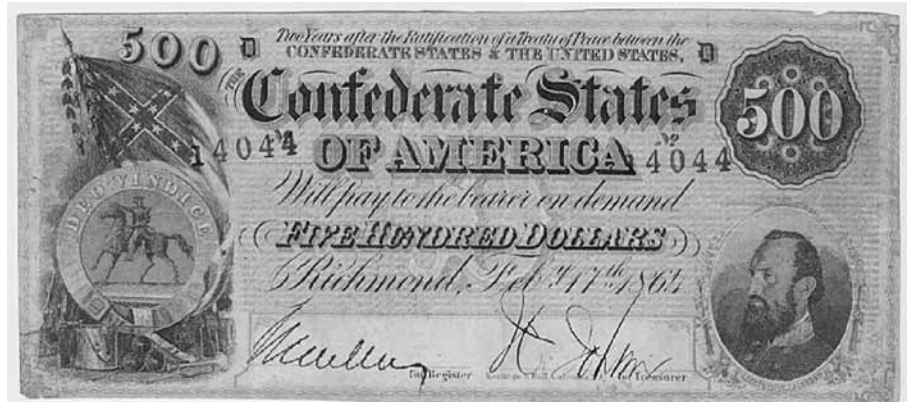 500 D Two Years after the Ratification of a Treaty of Peace between the D
CONFEDERATE STATES & THE UNITED STATES,
THE
Confederate States
500
No No
14044 OF AMERICA 14044
DEO VINDICE
Will pay to the bearer on demand
FIVE HUNDRED DOLLARS
Richmond, Feby. 17th, 1864
for Register for Treasurer